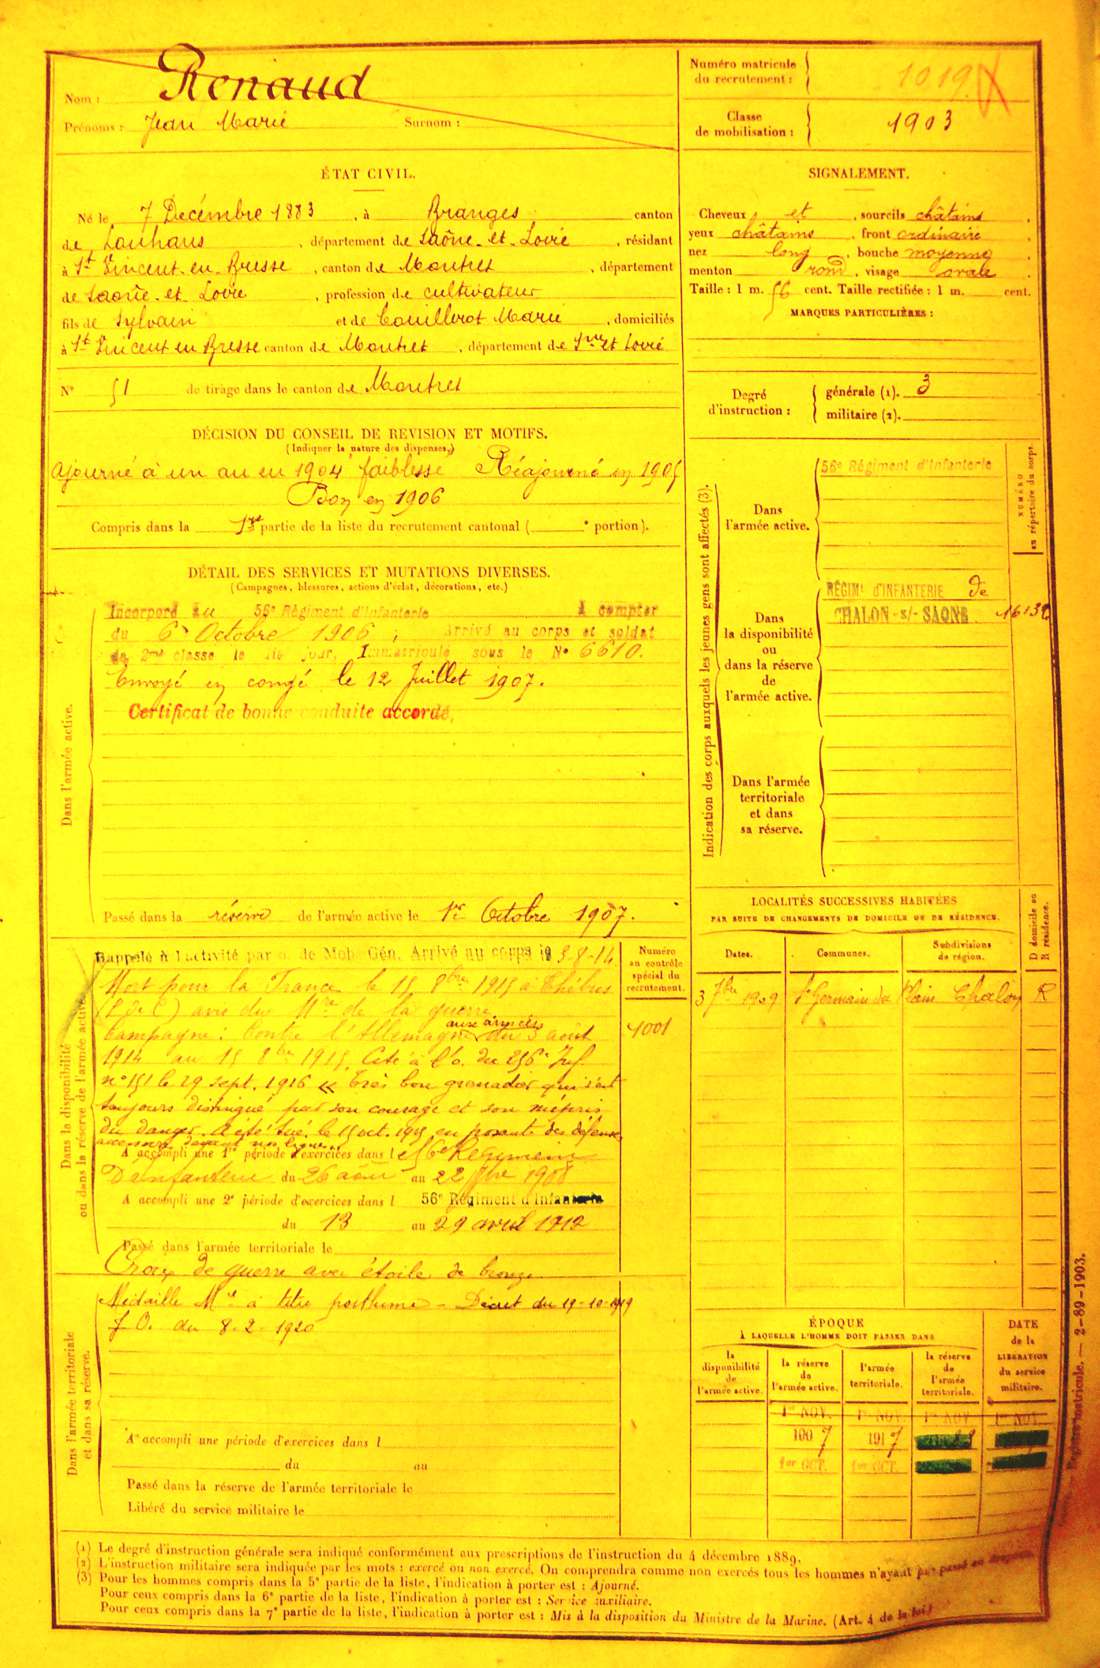 Nom : Renaud
Prénoms : Jean Marie Surnom :
Numéro matricule du recrutement : 1019
Classe de mobilisation : 1903
ÉTAT CIVIL.
Né le 7 Décembre 1883, à Branges canton
de Louhans, département de Saône-et-Loire, résidant
à St Vincent-en-Bresse, canton de Montret, département
de Saône-et-Loire, profession de cultivateur
fils de Sylvain et de Couillerot Marie, domiciliés
à St Vincent en Bresse canton de Montret, département de Sne et Loire
N° 51 de tirage dans le canton de Montret
SIGNALEMENT.
Cheveux et, sourcils châtains,
yeux châtains, front ordinaire,
nez long, bouche moyenne,
menton rond, visage ovale.
Taille : 1 m. 56 cent. Taille rectifiée : 1 m. cent.
MARQUES PARTICULIÈRES :
Degré d'instruction :
générale (1). 3
militaire (2).
DÉCISION DU CONSEIL DE REVISION ET MOTIFS.
(Indiquer la nature des dispenses.)
Ajourné à un an en 1904 faiblesse Réajourné en 1905
Bon en 1906
Compris dans la 1re partie de la liste du recrutement cantonal ( e portion).
DÉTAIL DES SERVICES ET MUTATIONS DIVERSES.
(Campagnes, blessures, actions d'éclat, décorations, etc.)
Dans l'armée active.
Incorporé au 56e Régiment d'Infanterie à compter
du 6 Octobre 1906, arrivé au corps et soldat
de 2me classe le dit jour. Immatriculé sous le N° 6610.
Envoyé en congé le 12 Juillet 1907.
Certificat de bonne conduite accordé.
Passé dans la réserve de l'armée active le 1er Octobre 1907.
Indication des corps auxquels les jeunes gens sont affectés (3).
NUMÉRO au répertoire du corps.
Dans l'armée active.
56e Régiment d'Infanterie
Dans la disponibilité ou dans la réserve de l'armée active.
RÉGIMt D'INFANTERIE de
CHALON-s/-SAONE
Dans l'armée territoriale et dans sa réserve.
Dans la disponibilité ou dans la réserve de l'armée active.
Rappelé à l'activité par o. de Mob. Gén. Arrivé au corps le 3-8-14.
Mort pour la France le 15 8bre 1915 à
(P. de C) avis du Mre de la guerre
Campagne : Contre l'Allemagne aux armées du 3 août
1914 au 15 8bre 1915. Cité à l'o. du 256e Inf.
n° 151 le 29 sept. 1916 « Très bon grenadier qui s'est
toujours distingué par son courage et son mépris
du danger. A été tué le 15 oct. 1915 en posant des défenses
accessoires devant nos lignes.
A accompli une 1re période d'exercices dans l 56e Régiment
D'infanterie du 26 août au 22 7bre 1908
A accompli une 2e période d'exercices dans l 56e Régiment d'Infanterie
du 13 au 29 avril 1912
Passé dans l'armée territoriale le
Croix de guerre avec étoile de bronze
Numéro au contrôle spécial du recrutement.
1001
LOCALITÉS SUCCESSIVES HABITÉES
PAR SUITE DE CHANGEMENTS DE DOMICILE OU DE RÉSIDENCE.
D domicile ou R résidence.
Dates. Communes. Subdivisions de région.
3 7bre 1909 St Germain du Plain Chalon R
Dans l'armée territoriale et dans sa réserve.
Médaille Mre à titre posthume - Décret du 19-10-1919
J.O. du 8.2.1920
A accompli une période d'exercices dans l
du au
Passé dans la réserve de l'armée territoriale le
Libéré du service militaire le
ÉPOQUE
À LAQUELLE L'HOMME DOIT PASSER DANS
la disponibilité de l'armée active.
la réserve de l'armée active.
l'armée territoriale.
la réserve de l'armée territoriale.
DATE de la LIBÉRATION du service militaire.
1er NOV. 1er NOV. 1er NOV. 1er NOV.
1907 1917
1er OCT. 1er OCT.
Registre matricule. — 2-89-1903.
(1) Le degré d'instruction générale sera indiqué conformément aux prescriptions de l'instruction du 4 décembre 1889.
(2) L'instruction militaire sera indiquée par les mots : exercé ou non exercé. On comprendra comme non exercés tous les hommes n'ayant pas passé au drapeau.
(3) Pour les hommes compris dans la 5e partie de la liste, l'indication à porter est : Ajourné.
Pour ceux compris dans la 6e partie de la liste, l'indication à porter est : Service auxiliaire.
Pour ceux compris dans la 7e partie de la liste, l'indication à porter est : Mis à la disposition du Ministre de la Marine. (Art. 4 de la loi)